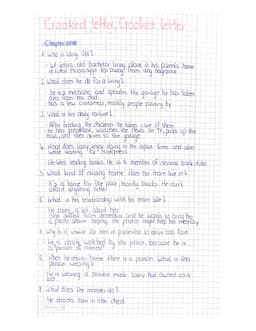 Crooked letter, Crooked letter
Chapter one
1. Who is Larry Ott?
- 41 years old bachelor living alone in his parents home
in rural Mississippi far away from any neighbors
2. What does he do for a living?
He is a mechanic, and operates the garage he has taken
over from his dad.
- has a few customers, mostly people passing by
3. What is his daily routine?
- After feeding the chickens he takes care of them
- he has breakfast, watches the news on TV, picks up the
mail, and then drives to the garage
4. What does Larry do in his spare time and also
while waiting for customers?
He likes reading books. He is a member of several book clubs
5. What kind of nursing home does his mom live in?
- It's a home for the poor, mostly blacks. He can't
afford anything better
6. What is his relationship with his mom like?
He cares a lot about her.
She suffers from dementia and he wants to bring her
a photo album hoping the photos might help her memory
7. Why is it unwise to him in particular to drive too fast
- He is closely watched by the police, because he is
a "person of interest"
8. When he returns home there is a person. What is this
person wearing?
He is wearing a zombie mask. Larry had owned as a
kid
9. What does the monster do?
He shoots him in the chest